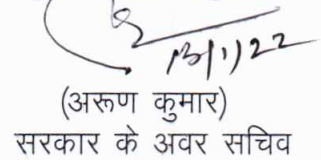 13/1/22
(अरूण कुमार)
सरकार के अवर सचिव